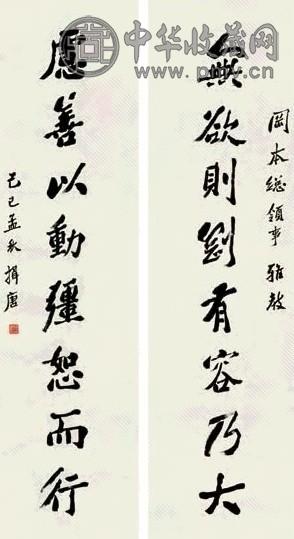 中华收藏网
岡本總領事 雅教
無欲則剛有容乃大
慮善以動彊恕而行
己巳孟秋 揖唐